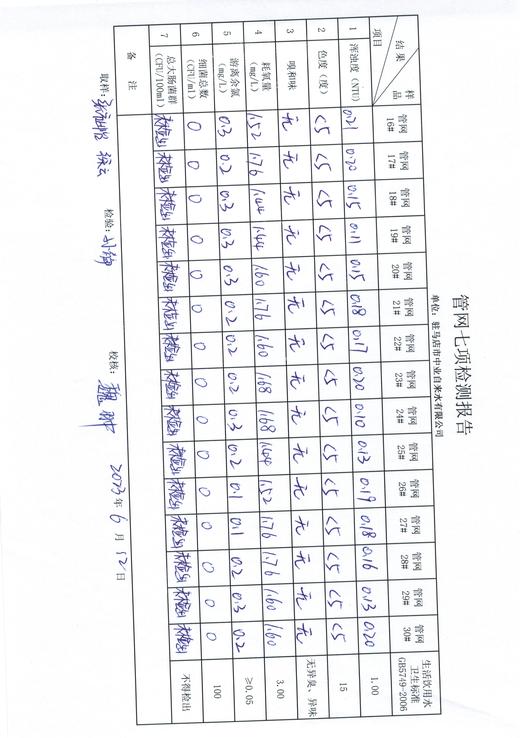 管网七项检测报告
单位：驻马店市中业自来水有限公司
样品 结果 项目 管网16# 管网17# 管网18# 管网19# 管网20# 管网21# 管网22# 管网23# 管网24# 管网25# 管网26# 管网27# 管网28# 管网29# 管网30# 生活饮用水卫生标准GB5749-2006
1 浑浊度（NTU） 0.21 0.20 0.15 0.11 0.15 0.18 0.17 0.20 0.10 0.13 0.19 0.18 0.16 0.13 0.20 1.00
2 色度（度） <5 <5 <5 <5 <5 <5 <5 <5 <5 <5 <5 <5 <5 <5 <5 15
3 嗅和味 无 无 无 无 无 无 无 无 无 无 无 无 无 无 无 无异臭、异味
4 耗氧量（mg/L） 1.52 1.76 1.44 1.44 1.60 1.76 1.60 1.68 1.68 1.44 1.52 1.76 1.76 1.60 1.60 3.00
5 游离余氯（mg/L） 0.3 0.2 0.3 0.3 0.3 0.2 0.2 0.2 0.3 0.2 0.1 0.1 0.2 0.3 0.2 ≥0.05
6 细菌总数（CFU/ml） 0 0 0 0 0 0 0 0 0 0 0 0 0 0 0 100
7 总大肠菌群（CFU/100ml） 未检出 未检出 未检出 未检出 未检出 未检出 未检出 未检出 未检出 未检出 未检出 未检出 未检出 未检出 未检出 不得检出
备 注
取样： 检验： 校核： 2023年6月12日